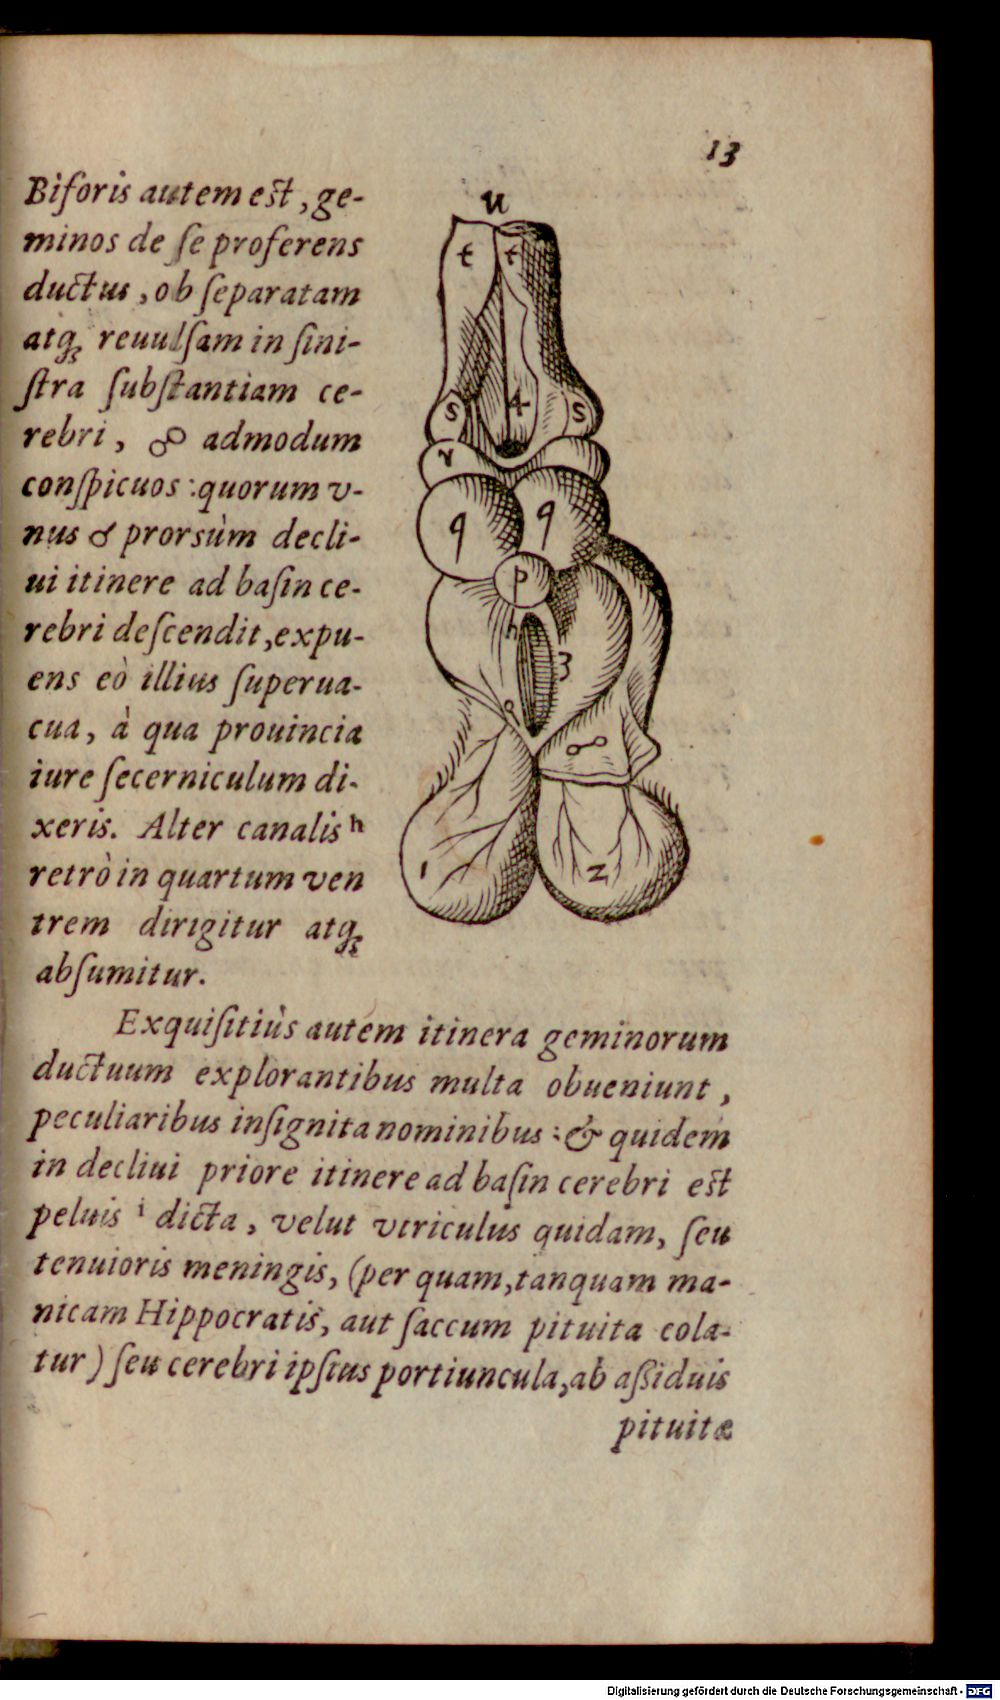 13
Biforis autem eſt, ge-
minos de ſe proferens
ductus, ob ſeparatam
atq; reuulſam in ſini-
ſtra ſubſtantiam ce-
rebri, ☍ admodum
conſpicuos : quorum v-
nus prorsùm decli-
ui itinere ad baſin ce-
rebri deſcendit, expu-
ens eò illius ſuperua-
cua, à qua prouincia
iure ſecerniculum di-
xeris. Alter canalis h
retrò in quartum ven
trem dirigitur atq;
abſumitur.
u
t t
4
s s
r
q q
p
h
3
o
☍
1 2
Exquiſitiùs autem itinera geminorum
ductuum explorantibus multa obueniunt,
peculiaribus inſignita nominibus : & quidem
in decliui priore itinere ad baſin cerebri eſt
peluis i dicta, velut vtriculus quidam, ſeu
tenuioris meningis, (per quam, tanquam ma-
nicam Hippocratis, aut ſaccum pituita cola-
tur) ſeu cerebri ipſius portiuncula, ab aſſiduis
pituitæ
Digitalisierung gefördert durch die Deutsche Forschungsgemeinschaft - DFG